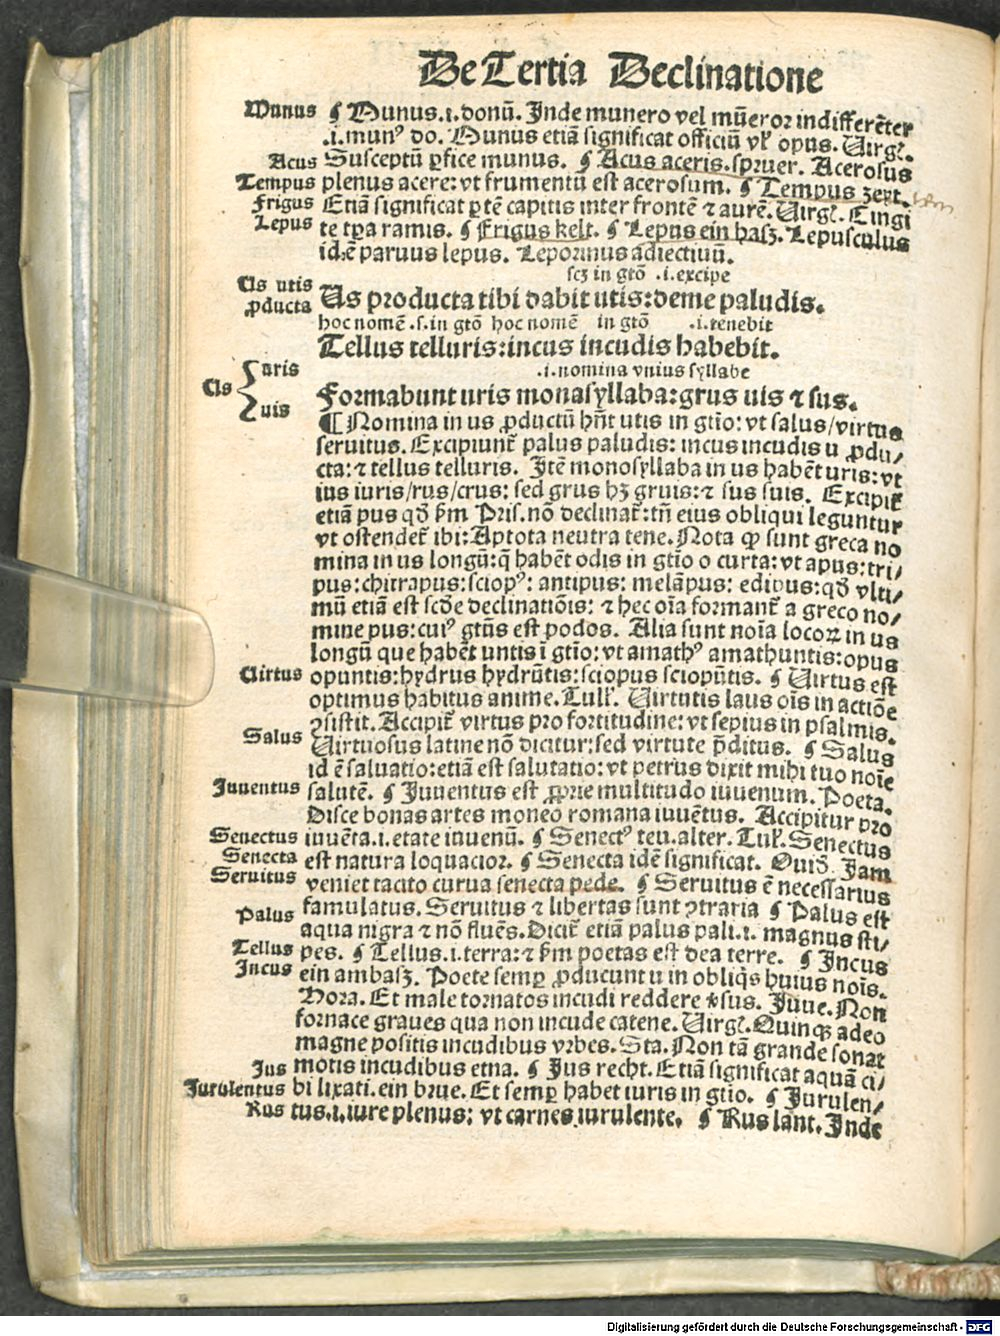 De Tertia Declinatione
Munus ¶ Munus.i.donū. Inde munero vel mūeror indifferēter
.i.munꝰ do. Munus etiā significat officiū vl' opus. Uirgl.
Acus Susceptū ꝑfice munus. ¶ Acus aceris.spruer. Acerosus
Tempus plenus acere: vt frumentū est acerosum. ¶ Tempus zeyt.
Frigus Etiā significat ꝑtē capitis inter frontē ⁊ aurē. Uirgl. Cingi
Lepus te tꝑa ramis. ¶ Frigus kelt. ¶ Lepus ein hasz. Lepusculus
idē paruus lepus. Leporinus adiectiuū.
scꝫ in gtō .i.excipe
Us utis Us producta tibi dabit utis: deme paludis.
ꝓducta hoc nomē .s.in gtō hoc nomē in gtō .i.tenebit
Tellus telluris: incus incudis habebit.
.i.nomina vnius syllabe
Us uris uis Formabunt uris monasyllaba: grus uis ⁊ sus.
¶ Nomina in us ꝓductū hn̄t utis in gtīo: vt salus/virtus
seruitus. Excipiunt᷑ palus paludis: incus incudis u ꝓdu/
cta: ⁊ tellus telluris. Itē monosyllaba in us habēt uris: vt
ius iuris/rus/crus: sed grus hꝫ gruis: ⁊ sus suis. Excipit᷑
etiā pus qď ẜm Pris. nō declinat᷑: tn̄ eius obliqui leguntur
vt ostendet᷑ ibi: Aptota neutra tene. Nota ꝙ sunt greca no
mina in us longū: q̄ habēt odis in gtīo o curta: vt apus: tri/
pus: chitrapus: sciopꝰ: antipus: melāpus: edipus: qď vlti/
mū etiā est scďe declinatiōis: ⁊ hec oīa formant᷑ a greco no/
mine pus: cuiꝰ gtūs est podos. Alia sunt noīa locoꝝ in us
longū que habēt untis ī gtīo: vt amathꝰ amathuntis: opus
Uirtus opuntis: hydrus hydrūtis: sciopus sciopūtis. ¶ Uirtus est
optimus habitus anime. Tul'. Uirtutis laus oīs in actiōe
ꝯsistit. Accipit᷑ virtus pro fortitudine: vt sepius in psalmis.
Salus Uirtuosus latine nō dicitur: sed virtute p̄ditus. ¶ Salus
id ē saluatio: etiā est salutatio: vt petrus dixit mihi tuo noīe
Juuentus salutē. ¶ Juuentus est ꝓprie multitudo iuuenum. Poeta.
Disce bonas artes moneo romana iuuētus. Accipitur pro
Senectus iuuēta.i.etate iuuenū. ¶ Senectꝰ teu.alter. Tul'. Senectus
Senecta est natura loquacior. ¶ Senecta idē significat. Ouiď. Jam
Seruitus veniet tacito curua senecta pede. ¶ Seruitus ē necessarius
famulatus. Seruitus ⁊ libertas sunt ꝯtraria ¶ Palus est
Palus aqua nigra ⁊ nō fluēs. Dicit᷑ etiā palus pali.i. magnus sti/
Tellus pes. ¶ Tellus.i.terra: ⁊ ẜm poetas est dea terre. ¶ Incus
Incus ein ambasz. Poete semꝑ ꝓducunt u in obliq̄s huius noīs.
Hora. Et male tornatos incudi reddere v̉sus. Juue. Non
fornace graues qua non incude catene. Uirgl. Quinqꝫ adeo
magne positis incudibus vrbes. Sta. Non tā grande sonat
motis incudibus etna. ¶ Jus recht. Etiā significat aquā ci/
Jus bi lixati. ein brue. Et semꝑ habet iuris in gtīo. ¶ Jurulen/
Jurulentus
Rus tus.i.iure plenus: vt carnes iurulente. ¶ Rus lant. Inde
Digitalisierung gefördert durch die Deutsche Forschungsgemeinschaft - DFG